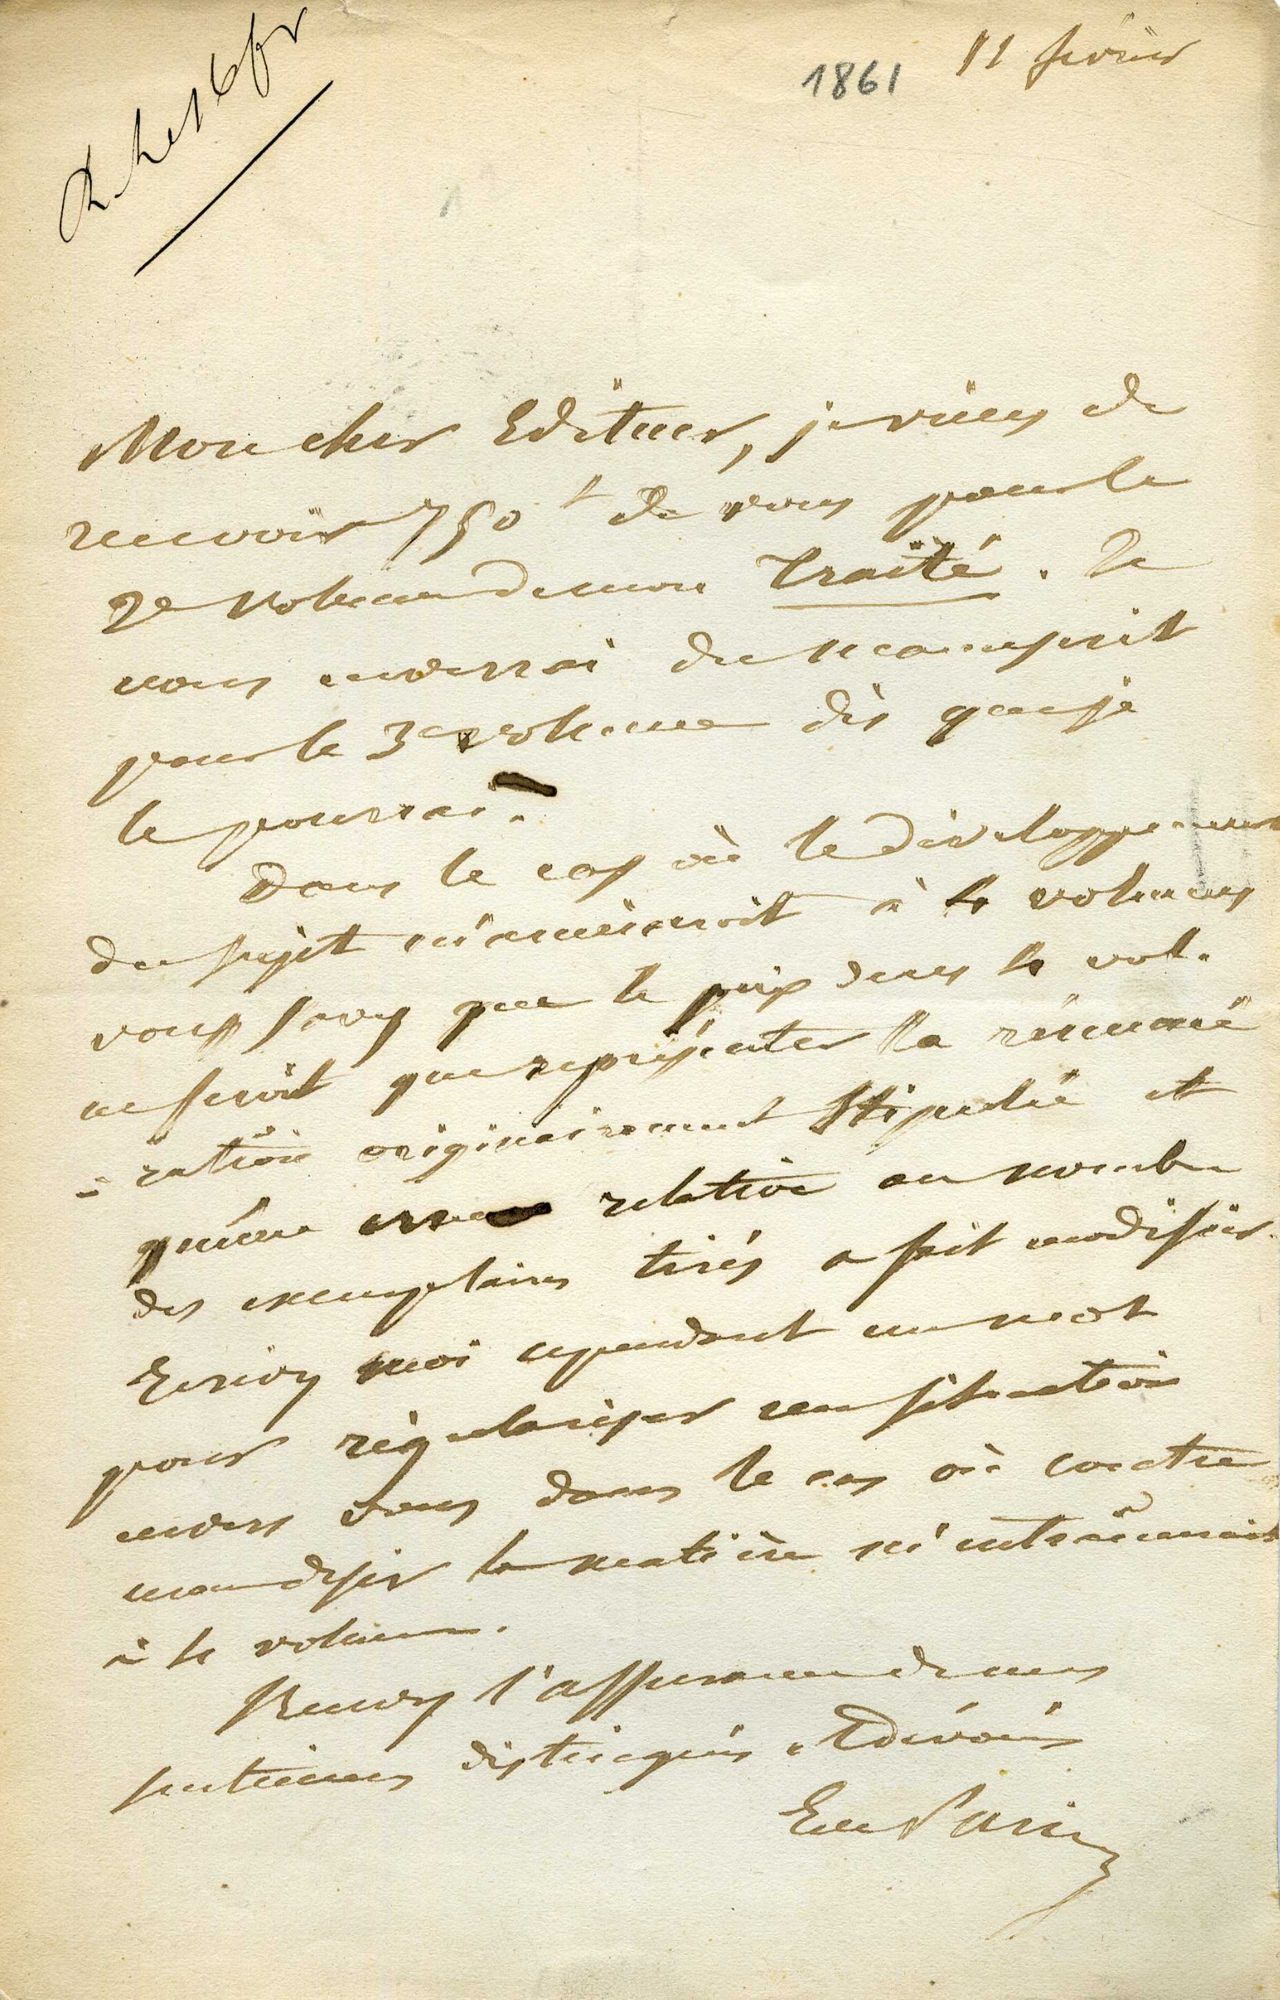 R. le 16 fr
1861 11 février
Mon cher Editeur, je viens de
recevoir 750 f de vous pour le
2e volume de mon Traité. Je
vous enverrai du manuscrit
pour le 3e volume dès que je
le pourrai.
Dans le cas où le développement
du sujet m'amènerait à 4 volumes
vous savez que le prix des 4 vol.
ne serait que représenter la rémuné
ration originairement stipulée et
qu'une erreur relative au nombre
des exemplaires tirés a fait modifier.
Ecrivez moi cependant un mot
pour régulariser ma situation
envers vous dans le cas où contre
mon désir la matière m'entraînerait
à 4 volumes.
Recevez l'assurance de mes
sentimens distingués et dévoués